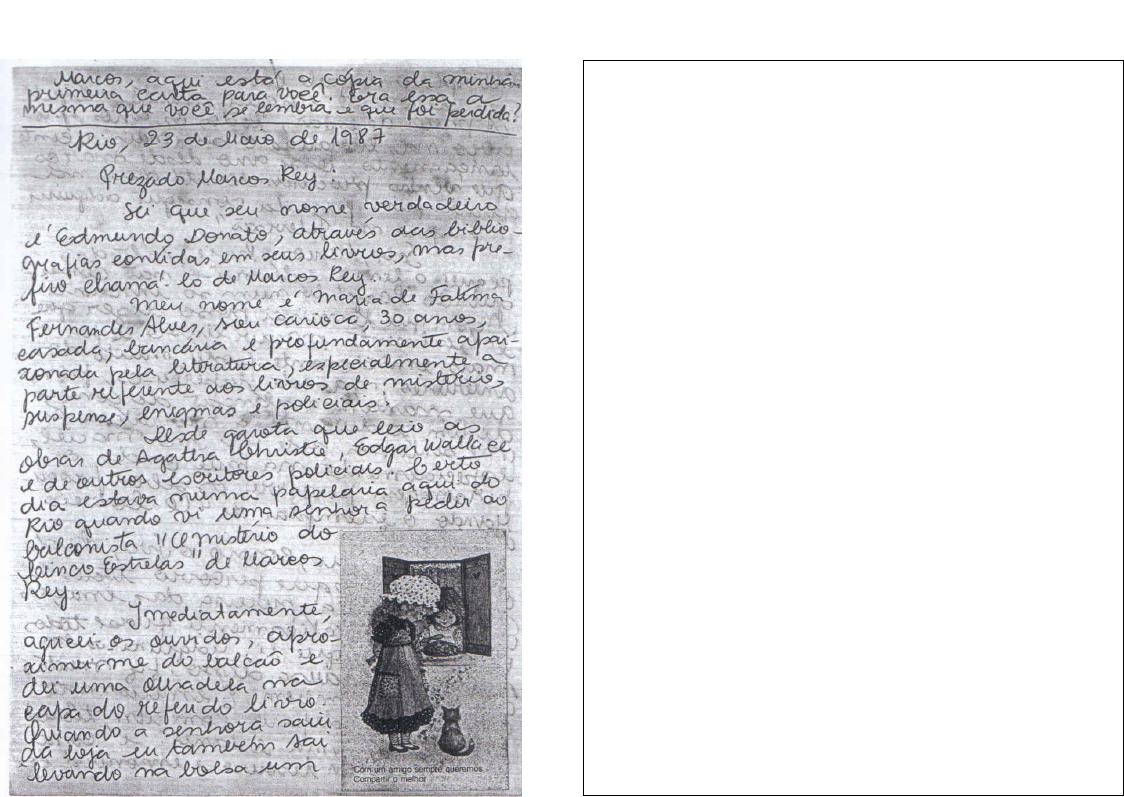 Marcos, aqui está a cópia da minha
primeira carta para você. Era essa a
mesma que você se lembra e que foi perdida?
Rio, 23 de Maio de 1987
Prezado Marcos Rey:
Sei que seu nome verdadeiro
é Edmundo Donato, através das biblio-
grafias contidas em seus livros, mas pre-
firo chamá-lo de Marcos Rey.
Meu nome é Maria de Fatima
Fernandes Alves, sou carioca, 30 anos,
casada, bancária e profundamente apai-
xonada pela literatura, especialmente a
parte referente aos livros de mistérios,
suspense, enigmas e policiais.
Desde garota que leio as
obras de Agatha Christie, Edgar Wallace
e de outros escritores policiais. Certo
dia estava numa papelaria aqui do
Rio quando vi uma senhora pedir ao
balconista "O mistério do
Cinco Estrelas" de Marcos
Rey.
Imediatamente,
agucei os ouvidos, apro-
ximei-me do balcão e
dei uma olhadela na
capa do referido livro.
Quando a senhora saiu
da loja eu também saí
levando na bolsa um
Com um amigo sempre queremos
Compartir o melhor